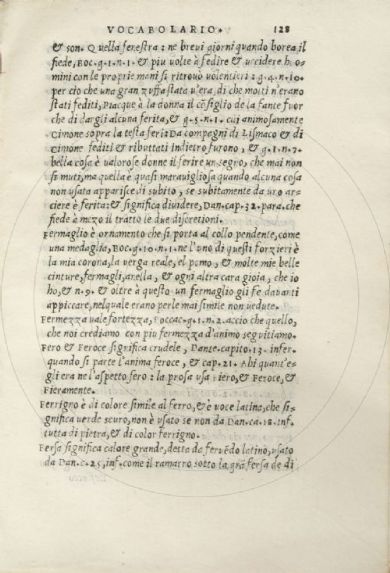 VOCABOLARIO. 128
& son. Quella fenestra: ne brevi giorni quando borea il
fiede, Boc. g. 1. n. 1. & piu volte à fedire & uccidere ho-
mini con le proprie mani si ritrovò volentieri: g. 4. n. 10.
per ciò che una gran zuffa stata u'era, di che molti n'erano
stati fediti, Piacque à la donna il cõsiglio de la fante fuor
che di dargli alcuna ferita, & g. 5. n. 1. cui animosamente
Cimone sopra la testa ferì: Da compegni di Lismaco & di
Cimone fediti & ributtati indietro furono, & g. 1. n. 7.
bella cosa è valorose donne il ferire un segno, che mai non
si muti, ma quella è quasi maravigliosa quando alcuna cosa
non usata apparisce di subito, se subitamente da uno ar-
ciere è ferita: & significa dividere, Dan. cap. 32. para. che
fiede à mezo il tratto le due discretioni.
Fermaglio è ornamento che si porta al collo pendente, come
una medaglia, Boc. g. 10. n. 1. ne l'uno di questi forzieri è
la mia corona, la verga reale, el pomo, & molte mie belle
cinture, fermagli, anella, & ogni altra cara gioia, che io
ho, & n. 9. & oltre à questo un fermaglio gli fe davanti
appiccare, nel quale erano perle mai simile non vedute.
Fermezza vale fortezza, Boccac. g. 1. n. 2. accio che quello,
che noi crediamo con piu fermezza d'animo seguitiamo.
Fero & Feroce significa crudele, Dante. capito. 13. infer.
quando si parte l'anima feroce, & cap. 21. Ahi quant'e-
gli era ne l'aspetto fero: la prosa usa Fiero, & Feroce, &
Fieramente.
Ferrigno è di colore simile al ferro, & è voce latina, che si-
gnifica verde scuro, non è usato se non da Dan. ca. 18. inf.
tutta di pietra, & di color ferrigno.
Fersa significa calore grande, detta da fervẽdo latino, usato
da Dan. c. 25. inf. come il ramarro sotto la grã fersa de di